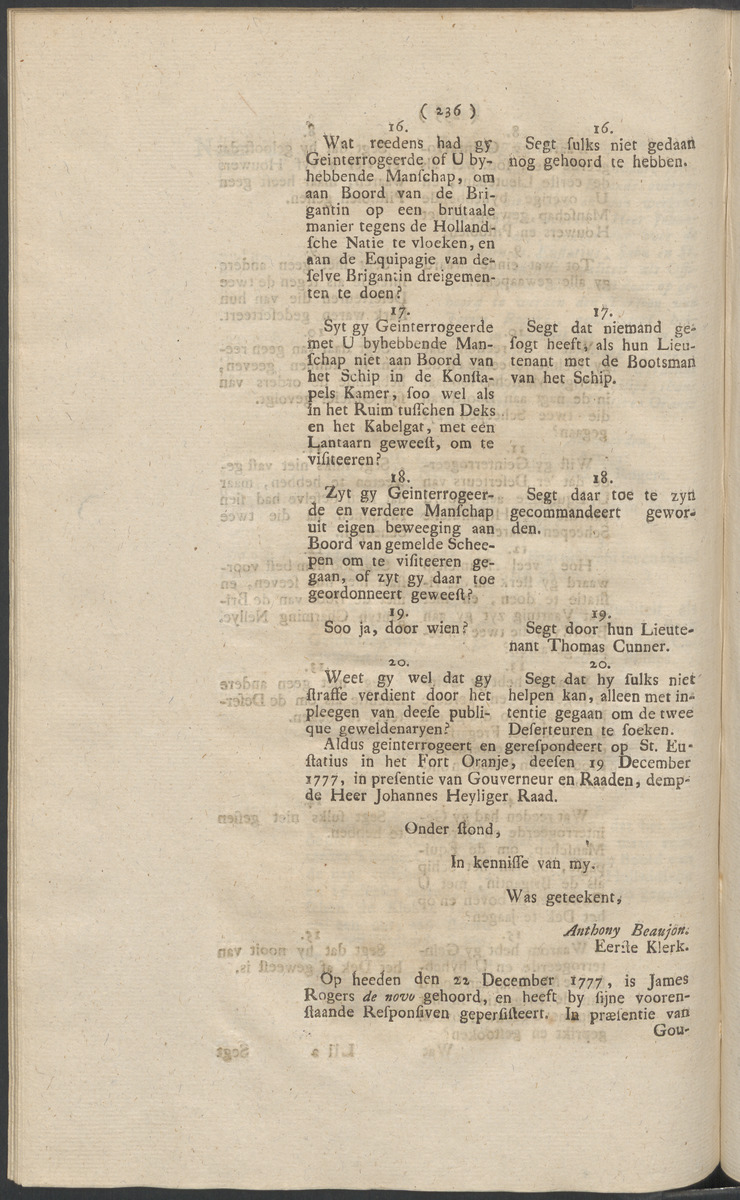 ( 236 )
16.
Wat reedens had gy
Geinterrogeerde of U by-
hebbende Manſchap, om
aan Boord van de Bri-
gantin op een brutaale
manier tegens de Holland-
ſche Natie te vloeken, en
aan de Equipagie van de-
ſelve Brigantin dreigemen-
ten te doen?
16.
Segt ſulks niet gedaan
nog gehoord te hebben.
17.
Syt gy Geinterrogeerde
met U byhebbende Man-
ſchap niet aan Boord van
het Schip in de Konſta-
pels Kamer, ſoo wel als
in het Ruim tuſſchen Deks
en het Kabelgat, met een
Lantaarn geweeſt, om te
viſiteeren?
17.
Segt dat niemand ge-
ſogt heeft, als hun Lieu-
tenant met de Bootsman
van het Schip.
18.
Zyt gy Geinterrogeer-
de en verdere Manſchap
uit eigen beweeging aan
Boord van gemelde Schee-
pen om te viſiteeren ge-
gaan, of zyt gy daar toe
geordonneert geweeſt?
18.
Segt daar toe te zyn
gecommandeert gewor-
den.
19.
Soo ja, door wien?
19.
Segt door hun Lieute-
nant Thomas Cunner.
20.
Weet gy wel dat gy
ſtraffe verdient door het
pleegen van deeſe publi-
que geweldenaryen?
20.
Segt dat hy ſulks niet
helpen kan, alleen met in-
tentie gegaan om de twee
Deſerteuren te ſoeken.
Aldus geinterrogeert en gereſpondeert op St. Eu-
ſtatius in het Fort Oranje, deeſen 19 December
1777, in preſentie van Gouverneur en Raaden, demp-
de Heer Johannes Heyliger Raad.
Onder ſtond,
In kenniſſe van my.
Was geteekent,
Anthony Beaujon.
Eerſte Klerk.
Op heeden den 22 December 1777, is James
Rogers de novo gehoord, en heeft by ſijne vooren-
ſtaande Reſponſiven geperſiſteert. In præſentie van
Gou-